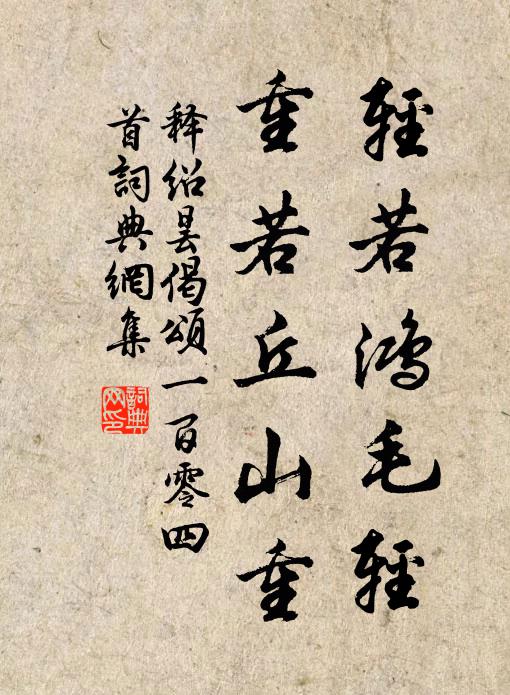 輕若鴻毛輕
重若丘山重
释绍昙偈頌一百零四
首詞典網集
詞典
网印